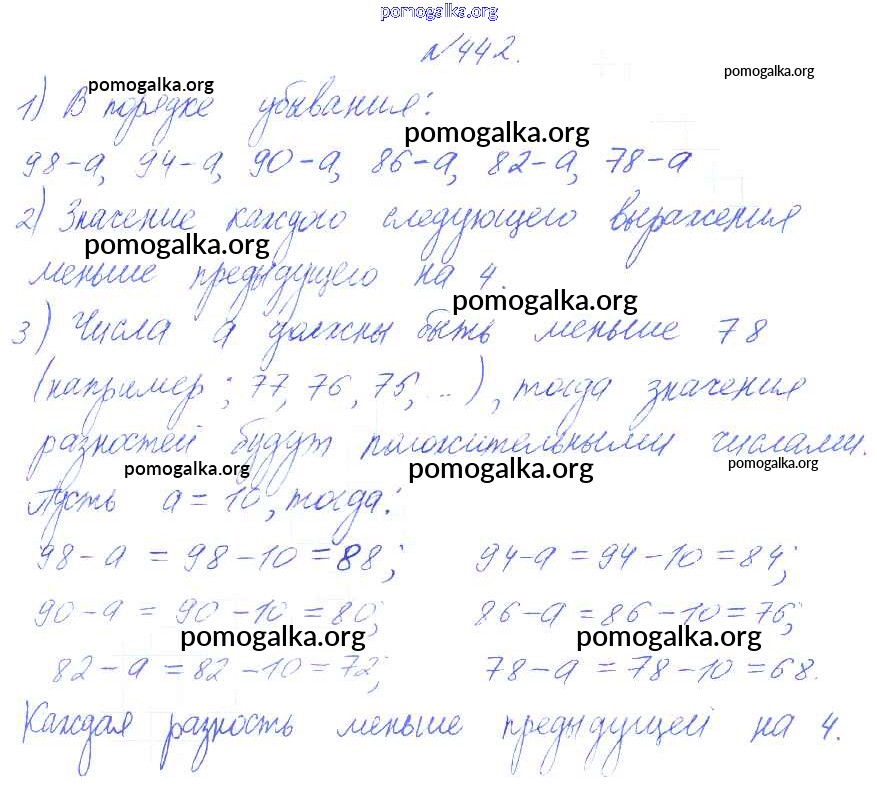 pomogalka.org
№442.
pomogalka.org pomogalka.org
1) В порядке убывания:
pomogalka.org
98-а, 94-а, 90-а, 86-а, 82-а, 78-а
2) Значение каждого следующего выражения
pomogalka.org
меньше предыдущего на 4.
pomogalka.org
3) Числа а должны быть меньше 78
(например; 77, 76, 75, ...), тогда значения
разностей будут положительными числами.
pomogalka.org pomogalka.org pomogalka.org
Пусть а = 10, тогда:
98-а = 98-10 = 88; 94-а = 94-10 = 84;
90-а = 90-10 = 80; 86-а = 86-10 = 76;
pomogalka.org pomogalka.org
82-а = 82-10 = 72; 78-а = 78-10 = 68.
Каждая разность меньше предыдущей на 4.